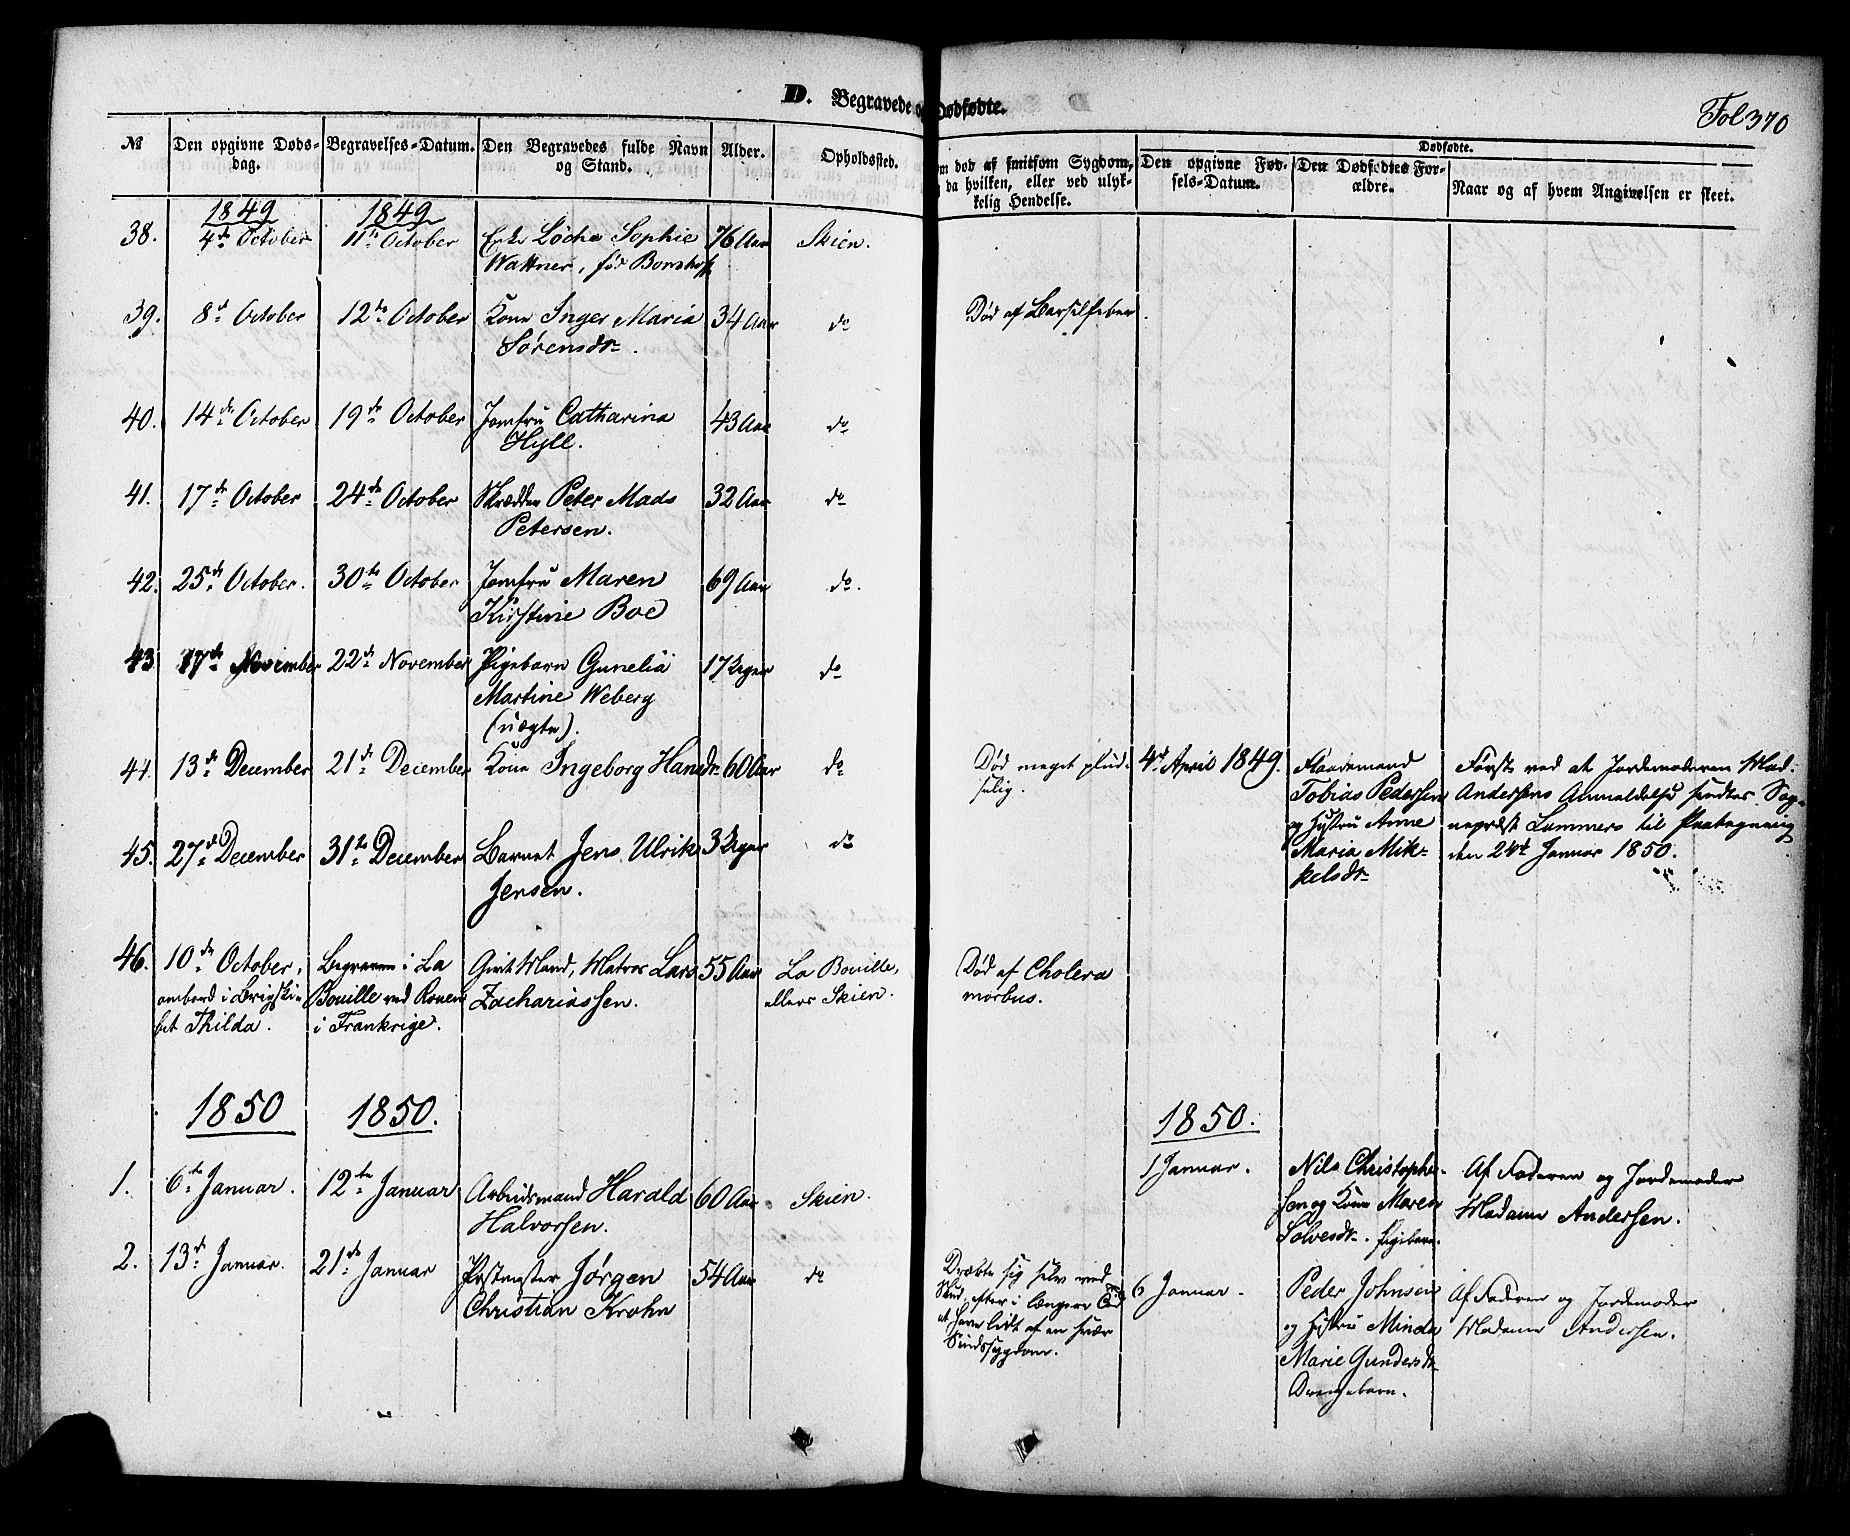 D. Begravede og Dødfødte.
Fol 370
№
Den opgivne Døds-
dag.
Begravelses-Datum.
Den Begravedes fulde Navn
og Stand.
Alder.
Opholdssted.
om død af smitsom Sygdom,
da hvilken, eller ved ulyk-
kelig Hendelse.
Dødfødte.
Den opgivne Fød-
sels-Datum.
Den Dødfødtes For-
ældre.
Naar og af hvem Angivelsen er skeet.
1849
1849
38. 4de October 11te October Enke Sophie 76 Aar Skien.
Wattner, fød
39. 8de October 12te October Kone Inger Maria 34 Aar do Død af Barselfeber.
Sørensdr
40. 14de October 19de October Jomfru Catharina 43 Aar do
Hyll.
41. 17de October 24de October Skrædder Peter Mads 32 Aar do
Petersen.
42. 25de October. 30te October Jomfru Maren 69 Aar do.
Kirstine Boe
43 17de November 22de November Pigebarn Gunelia 17 Uger do
Martine Weberg
(uægte).
44. 13de December 21de December Kone Ingeborg Hansdr 60 Aar do Død meget plud-
selig.
4de April 1849.
Flaademand
Tobias Pedersen
og Hustru Anne
Maria Mik-
kelsdr
Først ved at Jordemoderen Mad:
Andersens Anmeldelse sendtes Sog-
nepræst Lammers til Paategning
den 24de Januar 1850.
45. 27de December 31te December Barnet Jens Ulrik 3 Uger do
Jensen.
46. 10de October, Begraven i La Givt Mand, Matros Lars 55 Aar La Bouille, Død af Cholera
ombord i Brigski- Bouille ved Rouen Zachariassen. ellers Skien. morbus.
bet Thilda. i Frankrige.
1850 1850. 1850.
1. 6te Januar. 12te Januar Arbeidsmand Harald 60 Aar Skien.
Halvorsen.
1 Januar.
Nils Christophe-
sen og Kone Maren
Solvesdr. Pigebarn.
Af Faderen og Jordemoder
Madame Andersen.
2. 13de Januar. 21de Januar Postmester Jørgen 54 Aar do
Christian Krohn
Dræbte sig selv ved
Skud, efter i længere Tid
at have lidt af en svær
Sindssygdom.
6 Januar.
Peder Johnsen
og Hustru Minda
Marie Gundersdr
Drengebarn.
Af Faderen og Jordemoder
Madame Andersen.